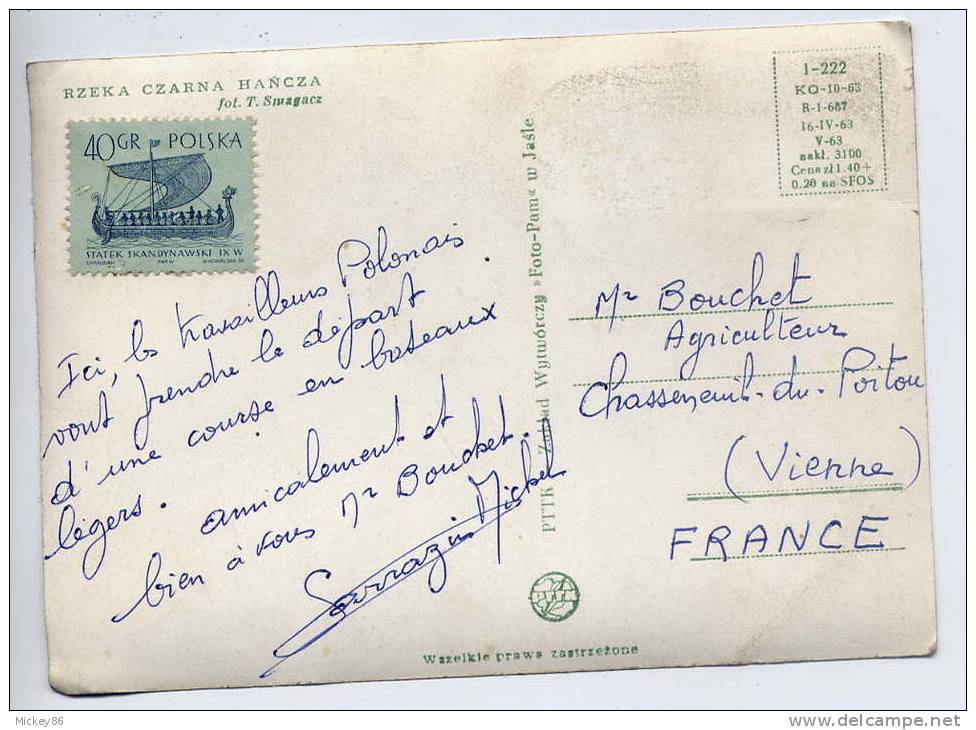 RZEKA CZARNA HAŃCZA
fot. T. Smagacz
40GR POLSKA
STATEK SKANDYNAWSKI IX W
Ici, les travailleurs Polonais
vont prendre le départ
d'une course en bateaux
légers.
amicalement et
bien à vous Mr Bouchet.
Sarrazin Michel
PTTK Zakład Wytwórczy »Foto-Pam« w Jaśle
1-222
KO-10-63
R-1-687
16-IV-63
V-63
nakł. 3100
Cena zł 1.40 +
0.20 na SFOS
Mr Bouchet
Agriculteur
Chasseneuil-du-Poitou
(Vienne)
FRANCE
Wszelkie prawa zastrzeżone
Mickey86
www.delcampe.net